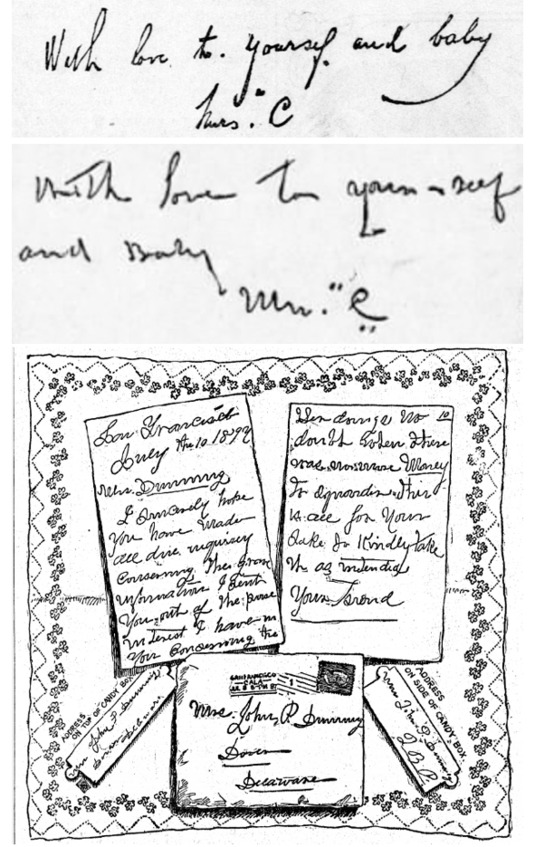 With love to yourself and baby
Mrs. "C
With love to your-self
and Baby
Mrs. "C"
San Francisco
July 10 1899
Mrs. Dunning
I Sincerely hope
you have made
all due inquirey
Concerning the
information I sent
You out of the pure
interest I have in
Your Concerning
doings No 10
doubt when there
was Money
to This
is all for Your
Sake So Kindly take
it as intended
Your friend
SAN FRANCISCO
CAL
Mrs. John P. Dunning
Dover
Delaware
ADDRESS
ON TOP OF CANDY BOX
Mrs John P. Dunning
ADDRESS
ON SIDE OF CANDY BOX
Mrs John P. Dunning